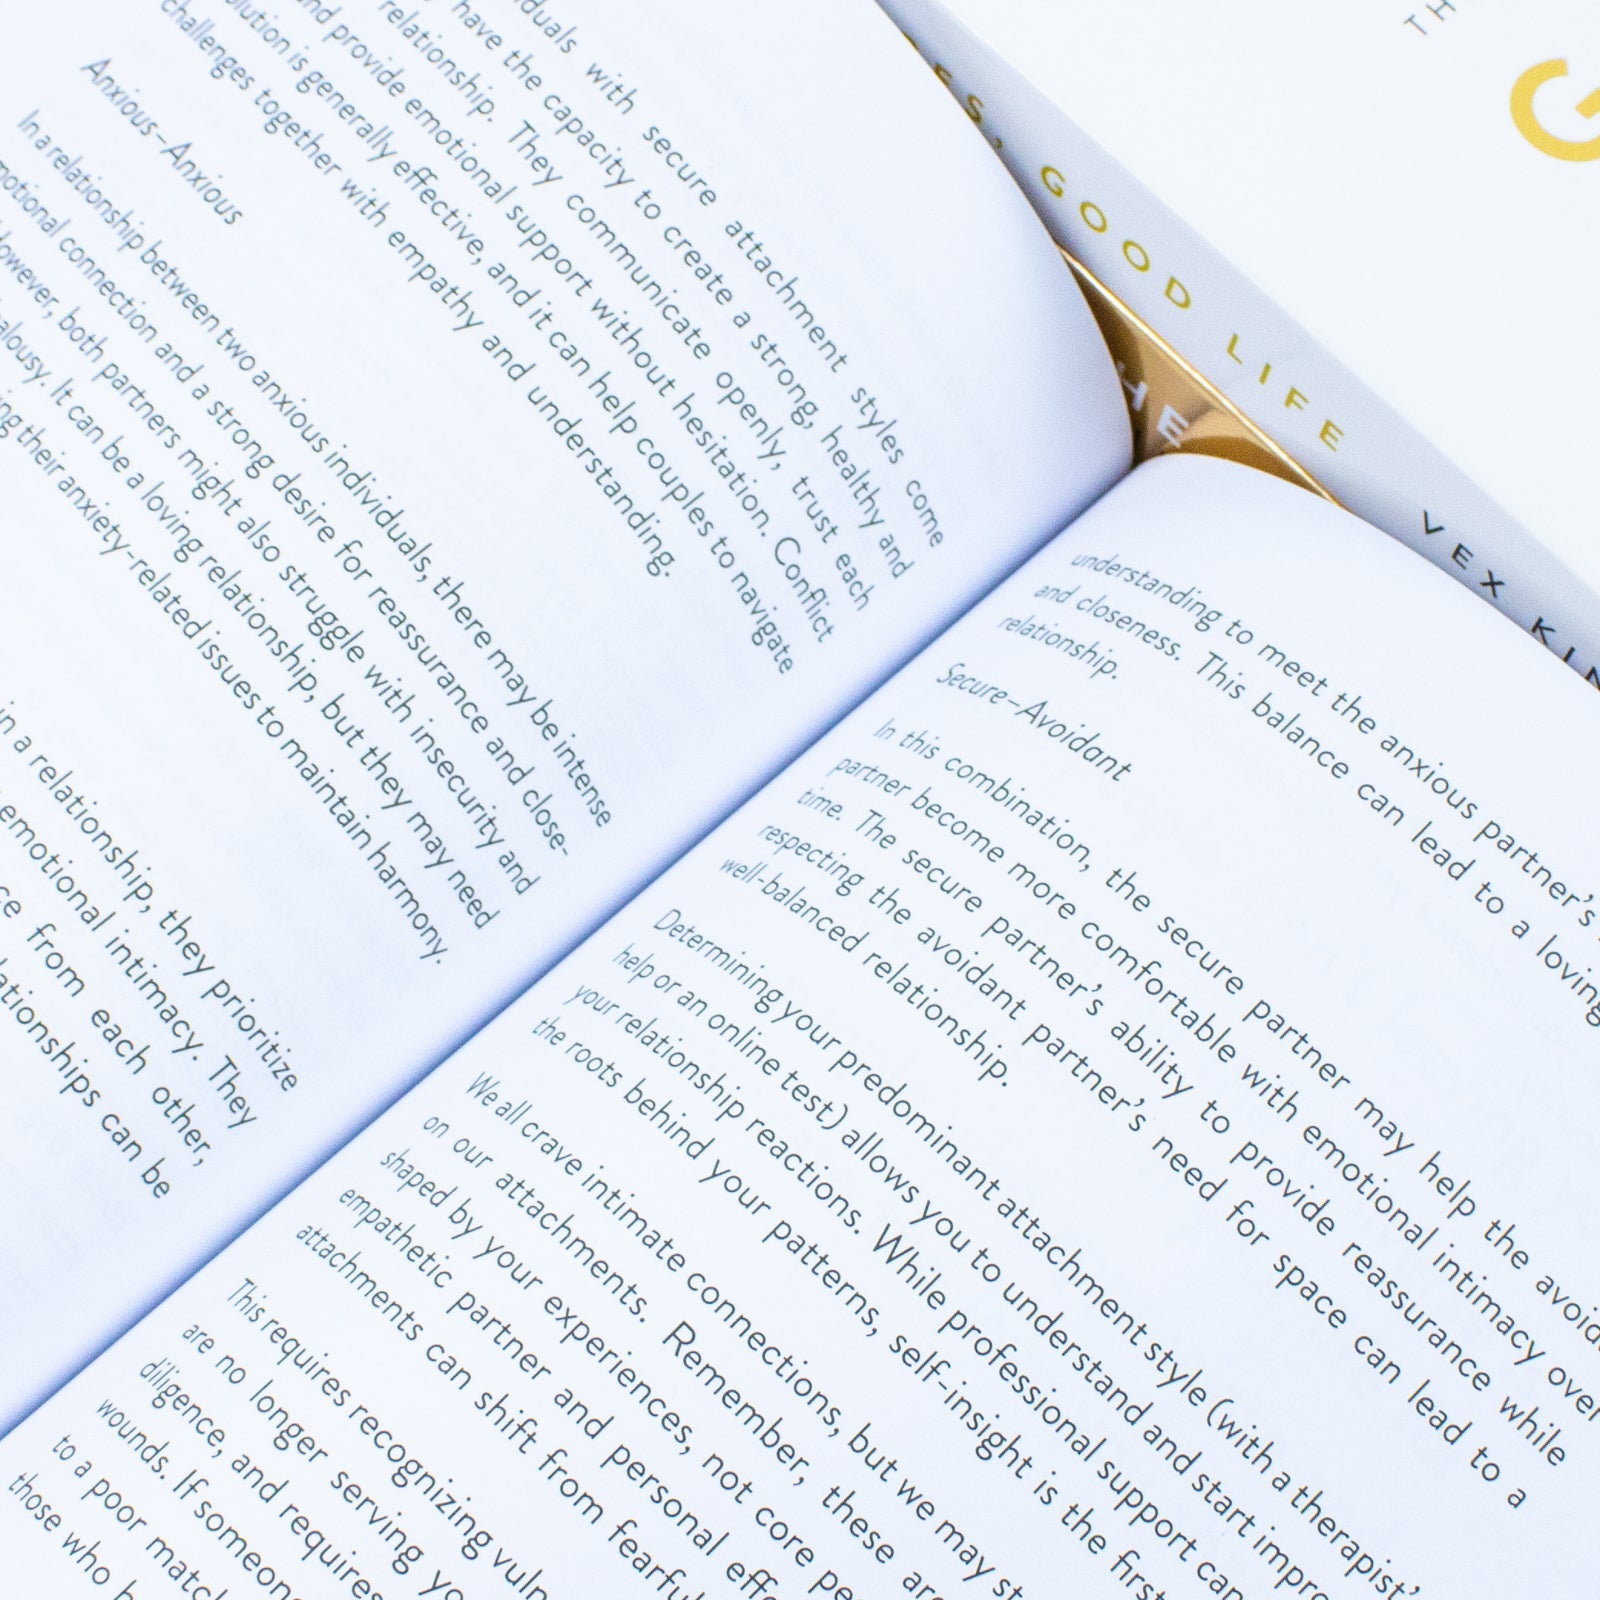 duals with secure attachment styles come
have the capacity to create a strong, healthy and
relationship. They communicate openly, trust each
and provide emotional support without hesitation. Conflict
olution is generally effective, and it can help couples to navigate
challenges together with empathy and understanding.
Anxious–Anxious
In a relationship between two anxious individuals, there may be intense
motional connection and a strong desire for reassurance and close-
However, both partners might also struggle with insecurity and
alousy. It can be a loving relationship, but they may need
ing their anxiety-related issues to maintain harmony.
in a relationship, they prioritize
emotional intimacy. They
ce from each other,
ationships can be
understanding to meet the anxious partner's
and closeness. This balance can lead to a loving
relationship.
Secure–Avoidant
In this combination, the secure partner may help the avoid
partner become more comfortable with emotional intimacy over
time. The secure partner's ability to provide reassurance while
respecting the avoidant partner's need for space can lead to a
well-balanced relationship.
Determining your predominant attachment style (with a therapist'
help or an online test) allows you to understand and start impro
your relationship reactions. While professional support can
the roots behind your patterns, self-insight is the first
We all crave intimate connections, but we may st
on our attachments. Remember, these are
shaped by your experiences, not core pe
empathetic partner and personal eff
attachments can shift from fearful
This requires recognizing vuln
are no longer serving yo
diligence, and requires
wounds. If someon
to a poor match
those who h
ES, GOOD LIFE VEX KIN
HE
TH
G